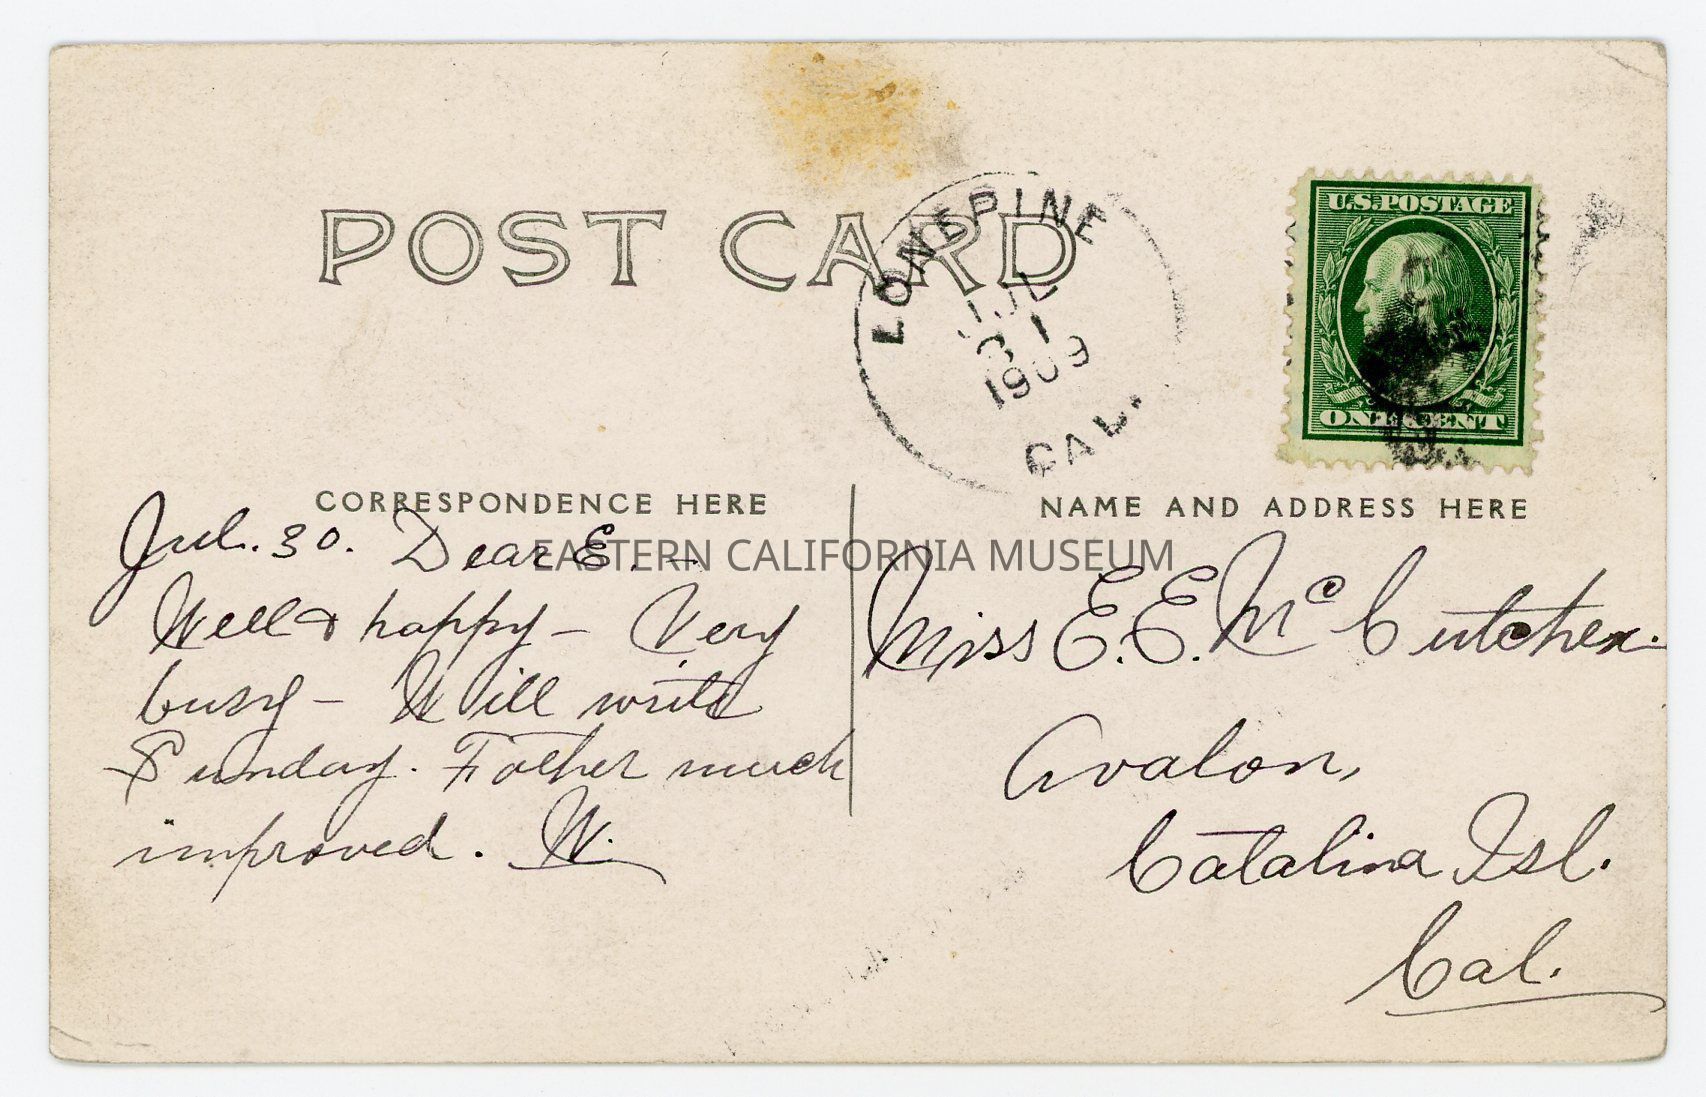 POST CARD
LONEPINE
JUL
31
1909
CAL.
U.S. POSTAGE
ONE CENT
CORRESPONDENCE HERE
NAME AND ADDRESS HERE
EASTERN CALIFORNIA MUSEUM
Jul. 30. Dear E. –
Well & happy – Very
busy – Will write
Sunday. Father much
improved. W.
Miss E. E. McCutchen.
Avalon,
Catalina Isl.
Cal.